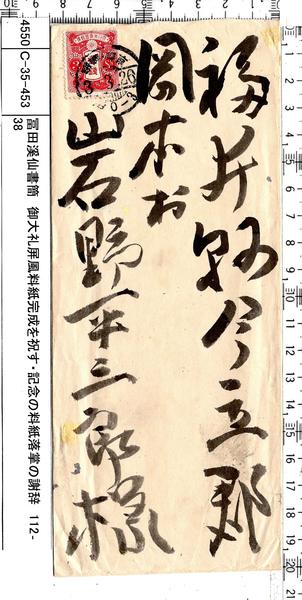 福井縣今立郡
岡本村
岩野平三郎様
4550 C-35-453 冨田溪仙書簡 御大礼屏風料紙完成を祝す・記念の料紙落掌の謝辞 112-
38